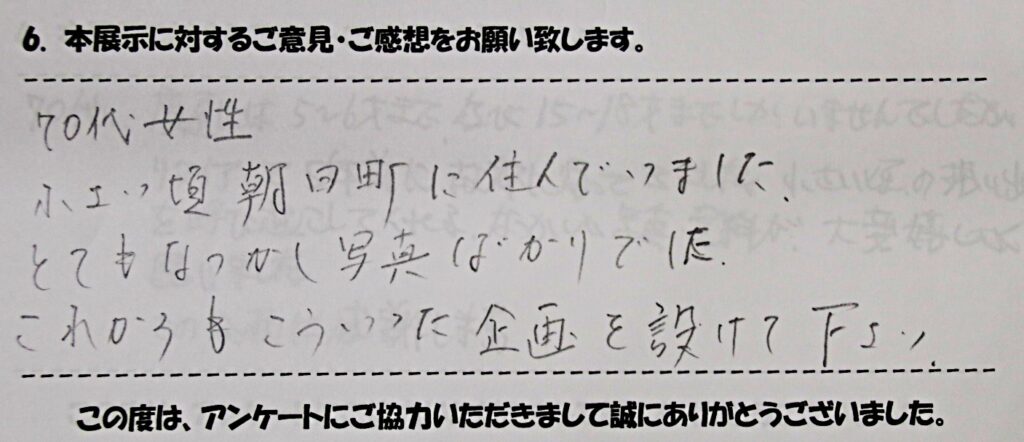 6. 本展示に対するご意見・ご感想をお願い致します。
70代女性
小さい頃朝日町に住んでいました。
とてもなつかし写真ばかりでした。
これからもこういった企画を設けて下さい。
この度は、アンケートにご協力いただきまして誠にありがとうございました。